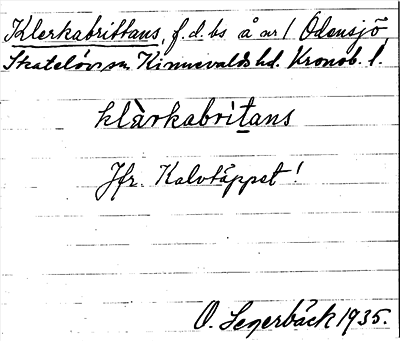 Klerkabrittans, f.d. bs å nr 1 Odensjö
Skatelövs sn Kinnevalds hd. Kronob. l.
klàrkabritans
Jfr. Kalvtäppet!
O. Segerbäck 1935.